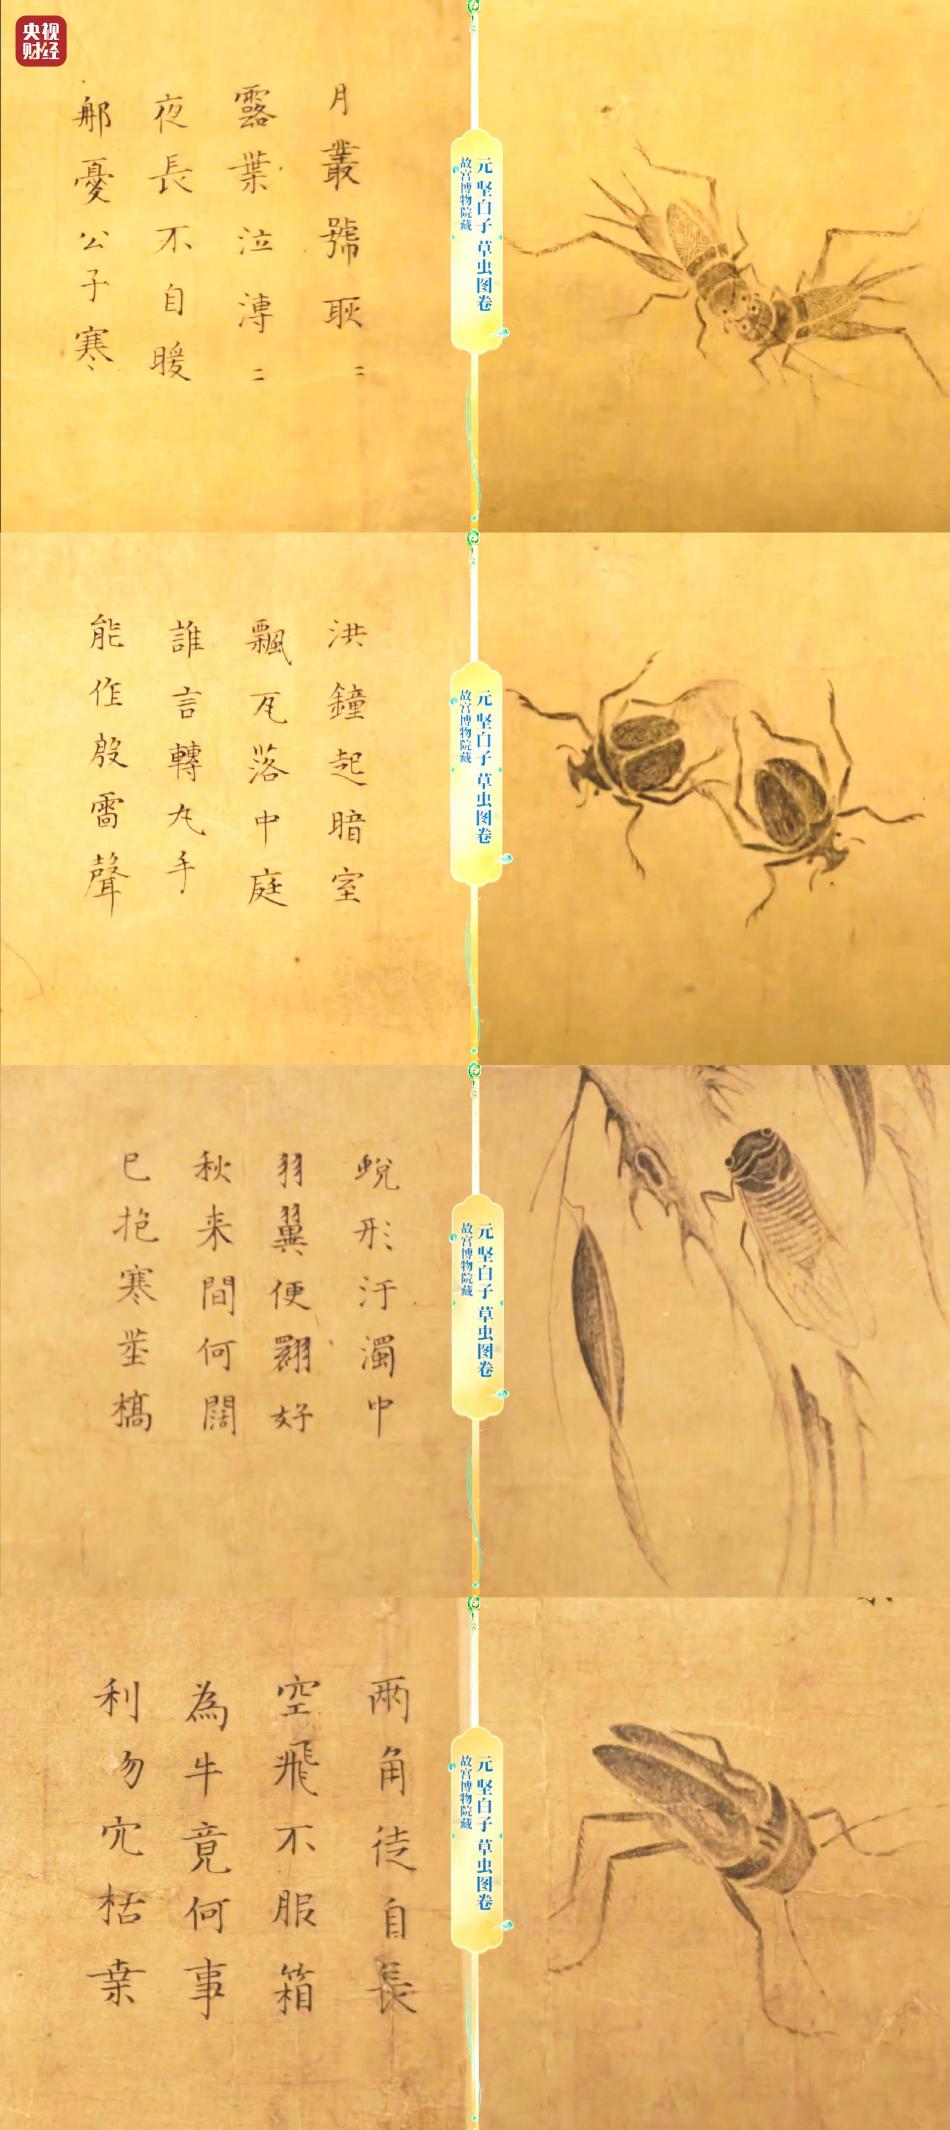 央视
财经
月叢號耿〻
露葉泣漙〻
夜長不自暖
郍憂公子寒
元 坚白子 草虫图卷
故宫博物院藏
洪鐘起暗室
飄瓦落中庭
誰言轉丸手
能作殷雷聲
元 坚白子 草虫图卷
故宫博物院藏
蛻形汙濁中
羽翼便翾好
秋来間何闊
已抱寒莖槁
元 坚白子 草虫图卷
故宫博物院藏
兩角徒自長
空飛不服箱
為牛竟何事
利勿穴枯桒
元 坚白子 草虫图卷
故宫博物院藏